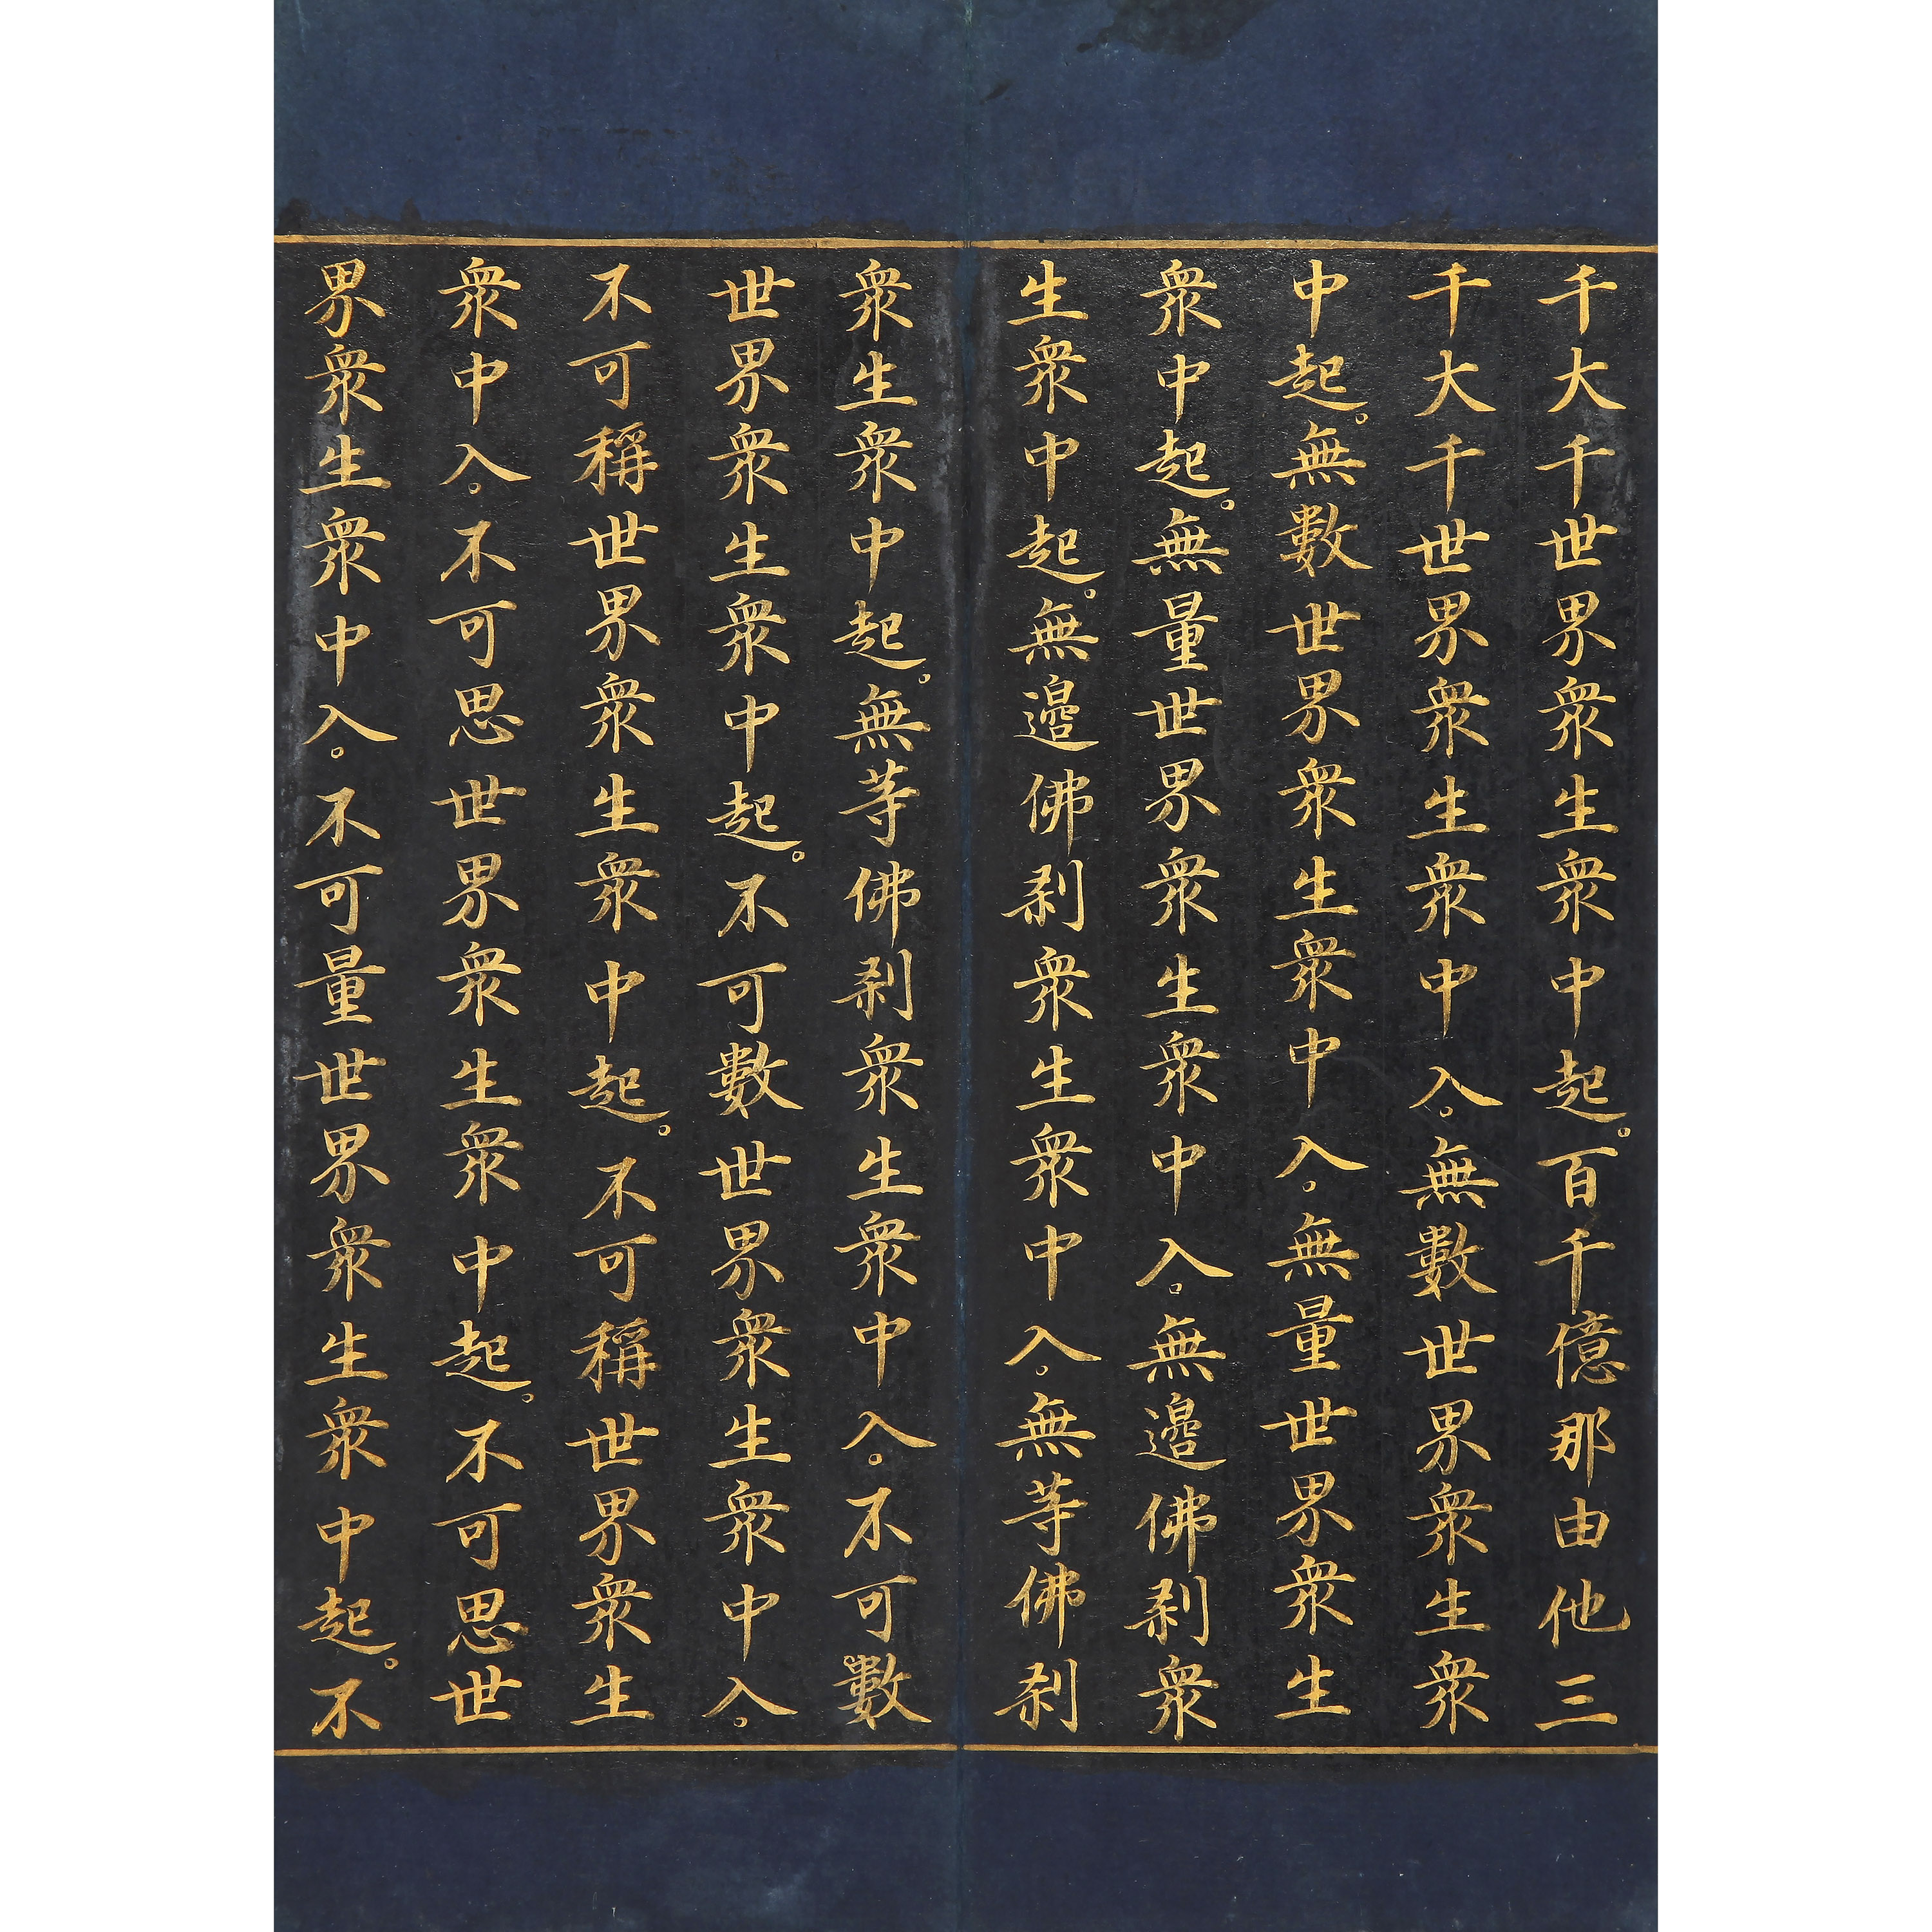 千大千世界衆生衆中起。百千億那由他三
千大千世界衆生衆中入。無數世界衆生衆
中起。無數世界衆生衆中入。無量世界衆生
衆中起。無量世界衆生衆中入。無邊佛剎衆
生衆中起。無邊佛剎衆生衆中入。無等佛剎
衆生衆中起。無等佛剎衆生衆中入。不可數
世界衆生衆中起。不可數世界衆生衆中入。
不可稱世界衆生衆中起。不可稱世界衆生
衆中入。不可思世界衆生衆中起。不可思世
界衆生衆中入。不可量世界衆生衆中起。不